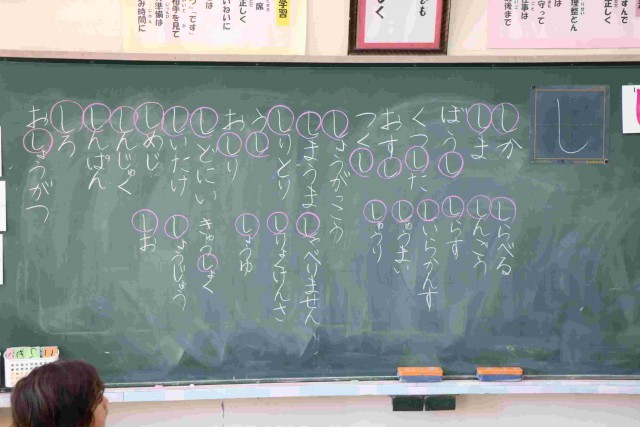 し
しか
しま
ぼうし
くつした
おすし
つくし
しょうがっこう
しまうま
しりとり
うし
おしり
しいたけ
しめじ
しんじゅく
しんぱん
しろ
おしょうがつ
しらべる
しんごう
しらす
しゅうまい
しゅうり
しゃべりません
しりょけんさ
しょうゆ
きゅうしょく
しお
学習
正しく
相手を見て
準備は
み時間に
ども
なく
正しく
理整とん
守って
後まで